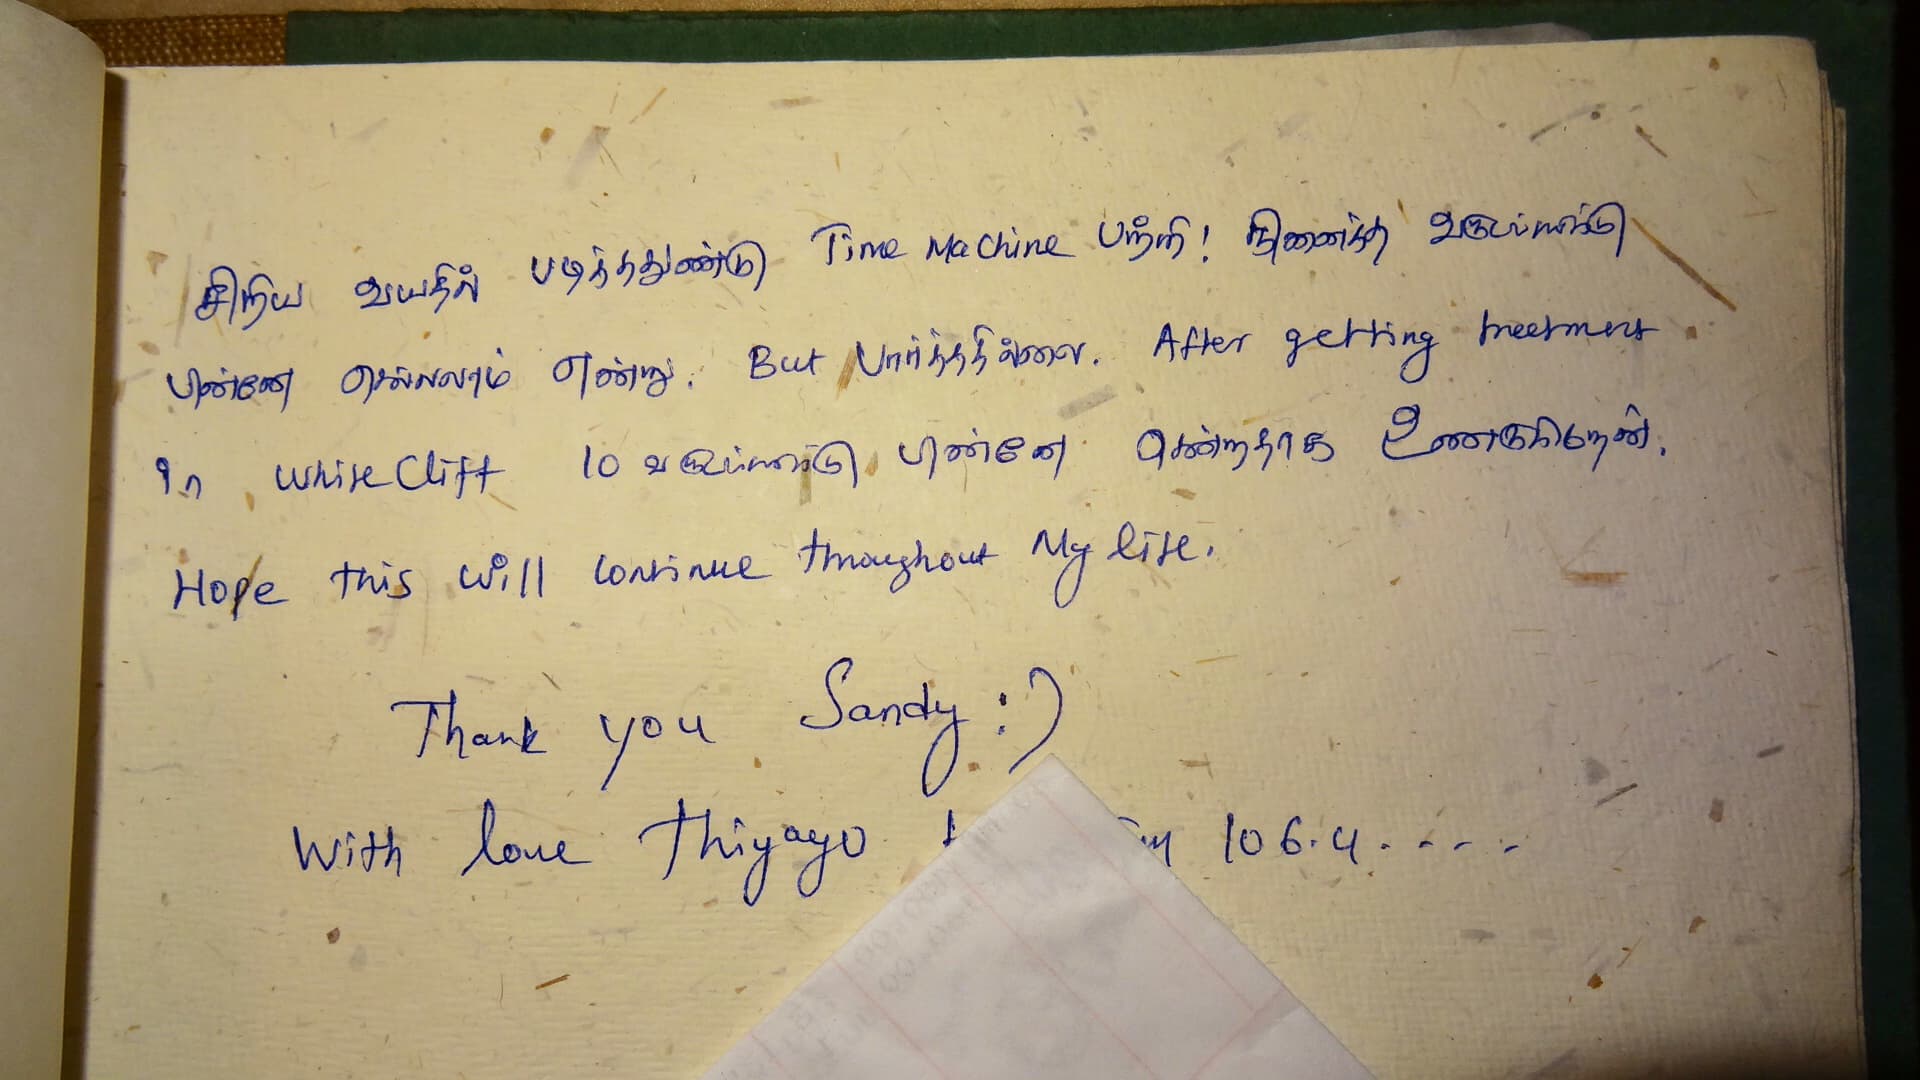 சிறிய வயதில் படித்ததுண்டு Time Machine பற்றி! நினைத்த வருடப்பாட்டு
பின்னே செல்லலாம் என்று. But பார்த்ததில்லை. After getting treetment
in White Cliff 10 பின்னே சென்றதாக உணருகிறேன்.
Hope this will continue throughout My life.
Thank you Sandy :)
With love Thiyagu 106.4.----